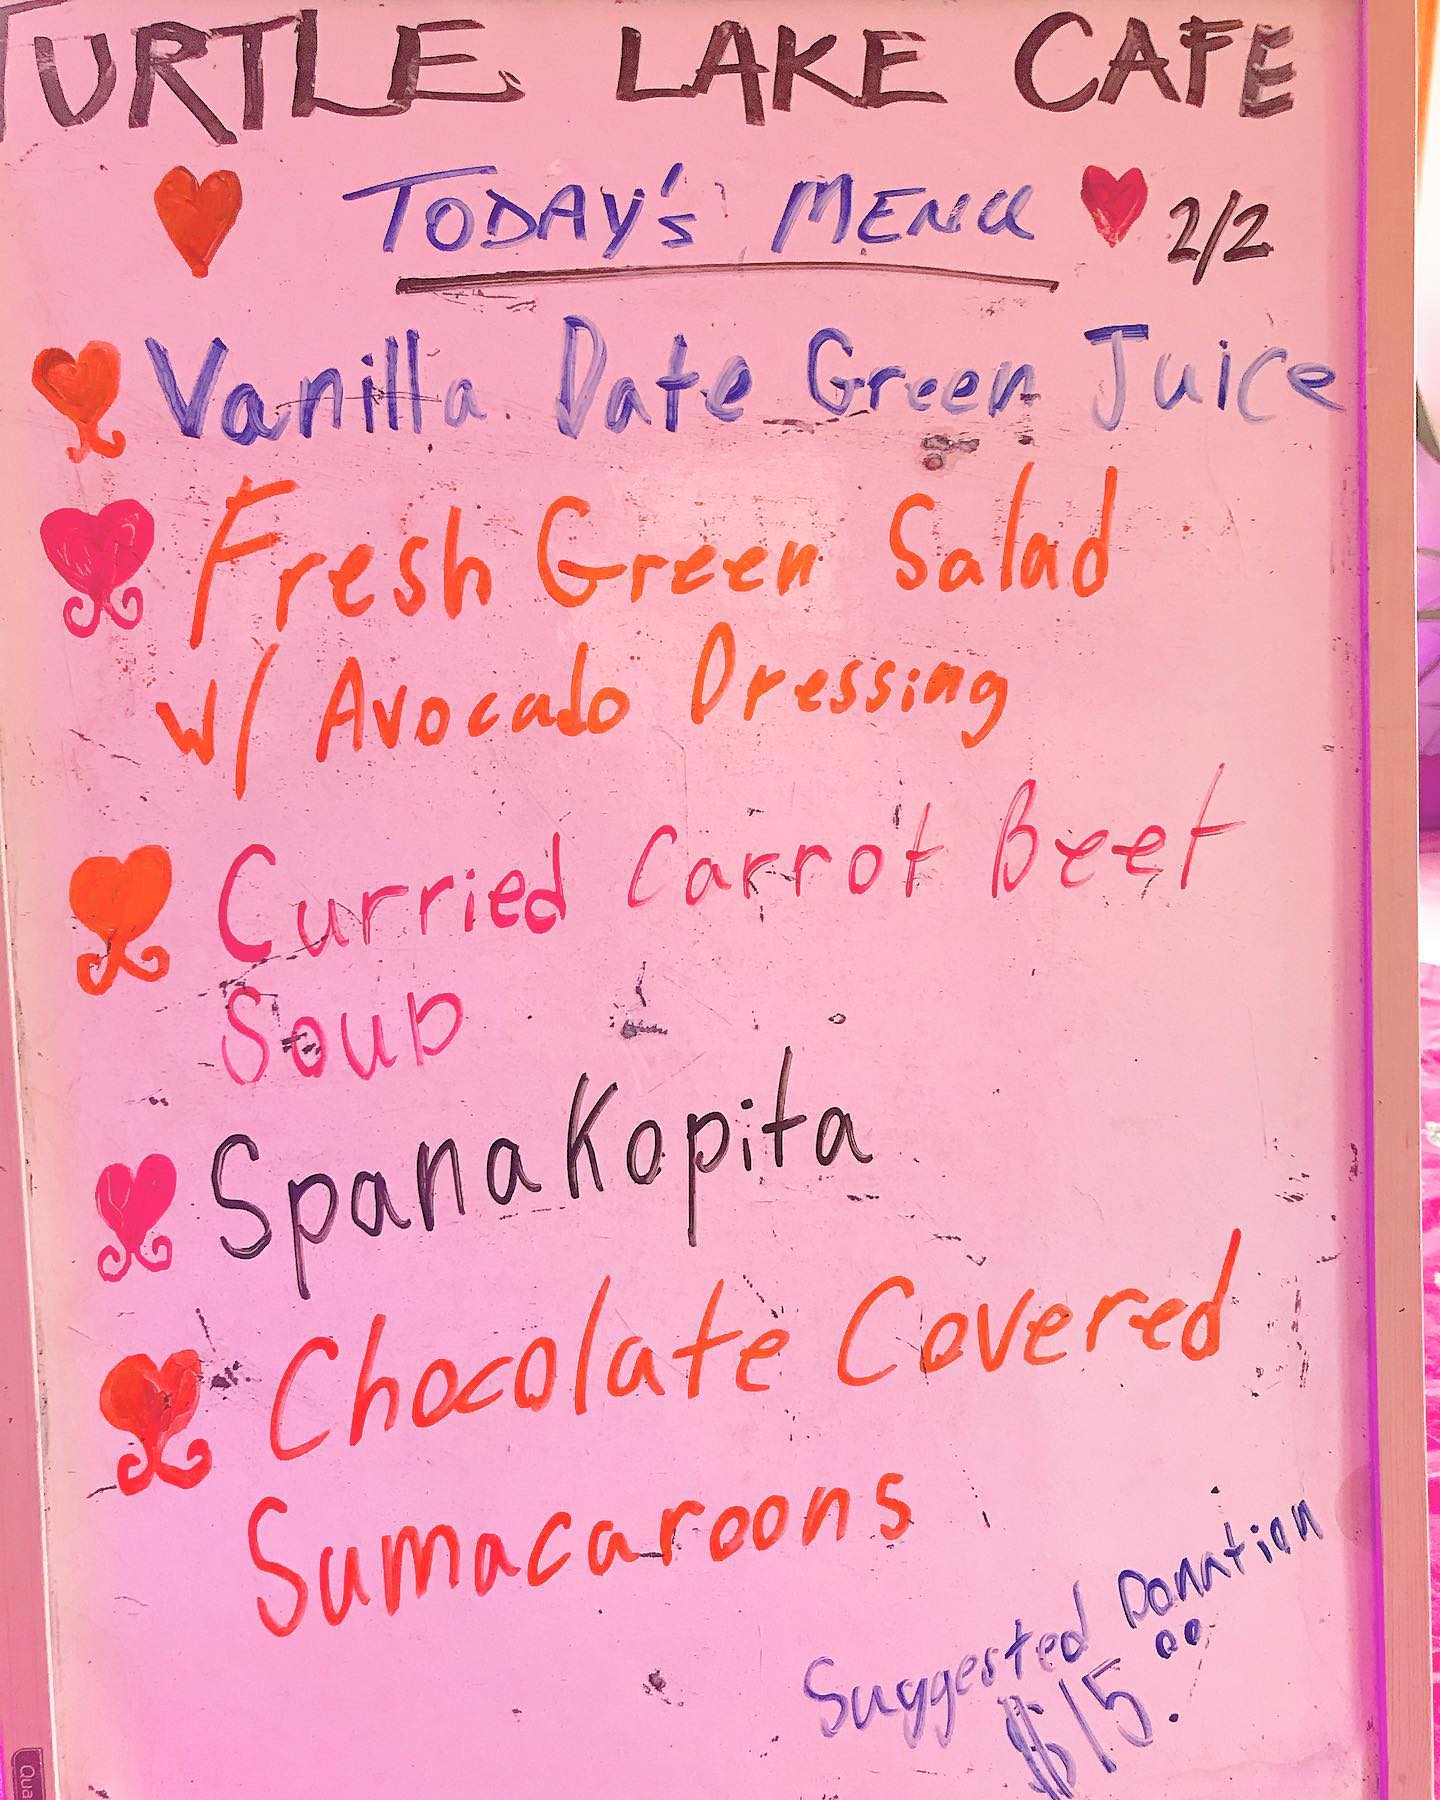 TURTLE LAKE CAFE
TODAY'S MENU 2/2
Vanilla Date Green Juice
Fresh Green Salad
w/ Avocado Dressing
Curried Carrot Beet
Soup
Spanakopita
Chocolate Covered
Sumacaroons
Suggested Donation
$15.00
Qua